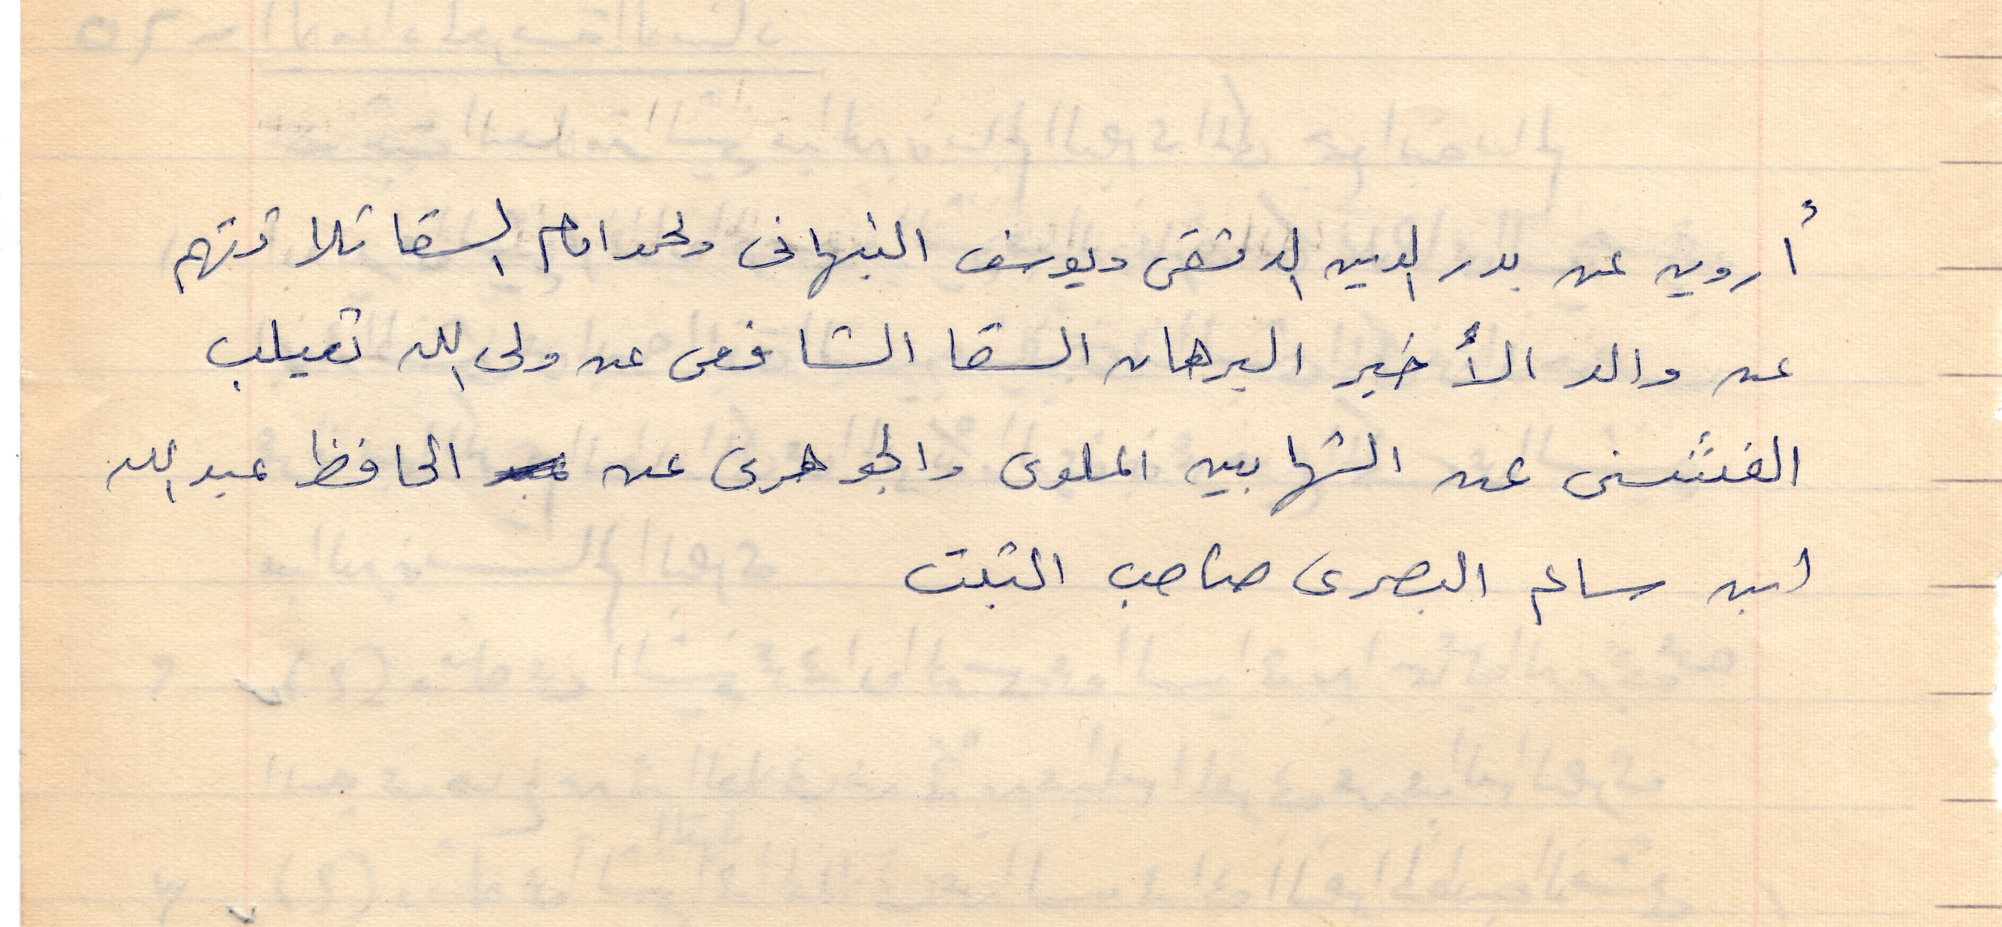 أرويه عن بدر الدين الدمشقى ويوسف النبهانى ومحمد امام السقا ثلاثتهم
عن والد الأخير البرهان السقا الشافعى عن ولى الله ثعيلب
الفشنى عن الشهابين الملوى والجوهرى عن الحافظ عبد الله
ابن سالم البصرى صاحب الثبت